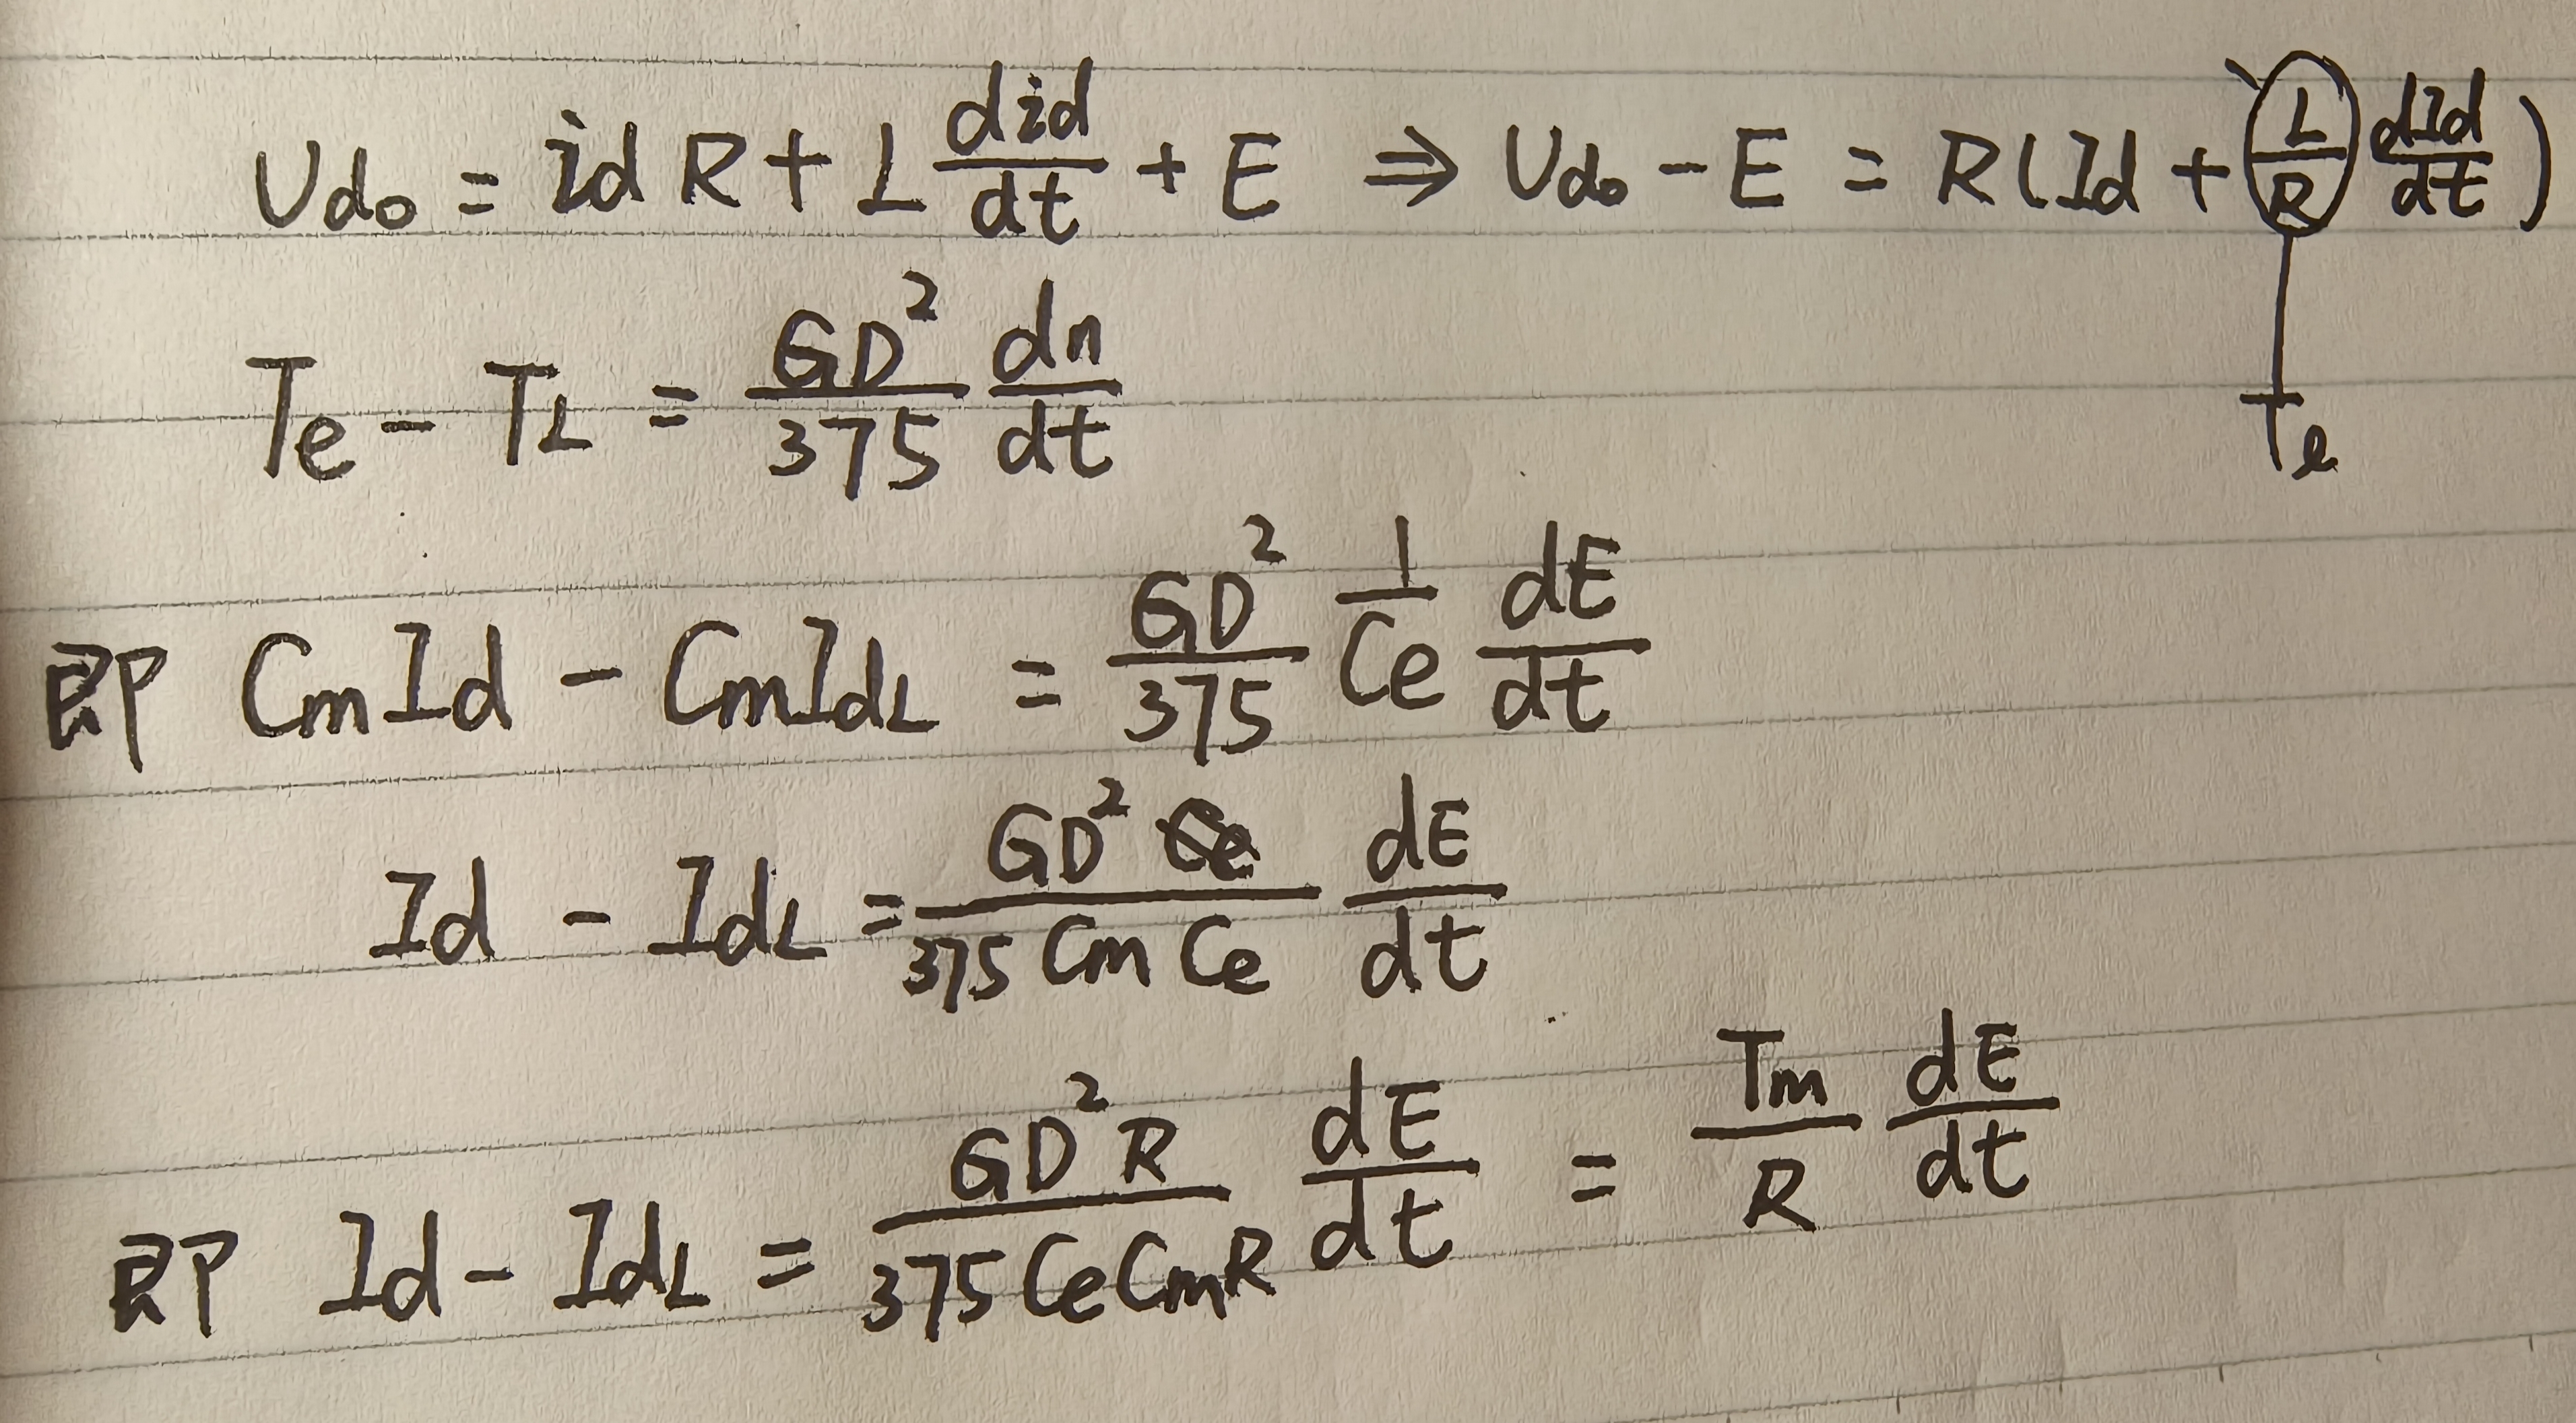 U_{d0} = i_d R + L \frac{di_d}{dt} + E ⇒ U_{d0} - E = R(I_d + \frac{L}{R} \frac{dI_d}{dt})
T_l
T_e - T_L = \frac{GD^2}{375} \frac{dn}{dt}
即 C_m I_d - C_m I_{dL} = \frac{GD^2}{375} \frac{1}{C_e} \frac{dE}{dt}
I_d - I_{dL} = \frac{GD^2}{375 C_m C_e} \frac{dE}{dt}
即 I_d - I_{dL} = \frac{GD^2 R}{375 C_e C_m R} \frac{dE}{dt} = \frac{T_m}{R} \frac{dE}{dt}